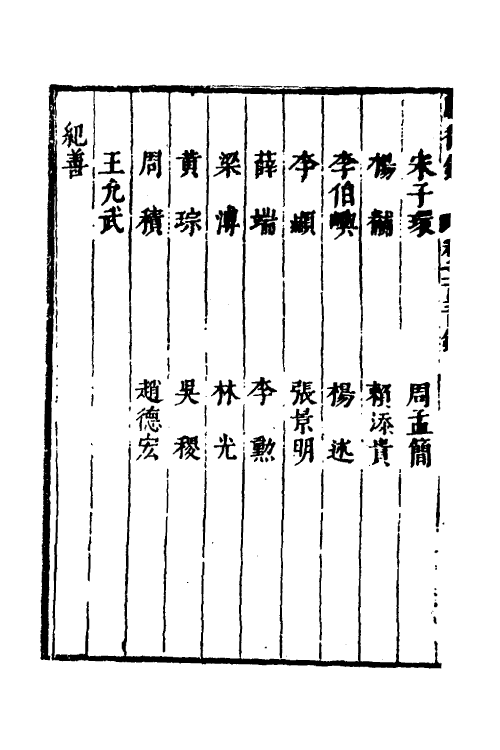 宋子環 周孟簡
楊黼 賴添貴
李伯嶼 楊述
李顓 張景明
薛瑞 李勲
梁溥 林光
黃琮 吳稷
周積 趙德宏
王允武
紀善